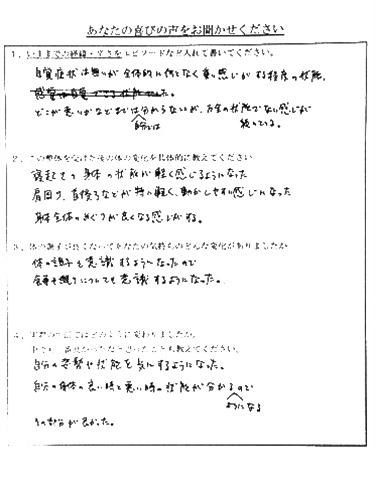 あなたの喜びの声をお聞かせください
1、いままでの経緯・辛さをエピソードなど入れて書いてください。
自覚症状は無いが全体的に何となく重い感じがする程度の状態。
どこが悪いかなどまでは自分では分からないが、万全の状態でない感じが
続いている。
2、この整体を受けた後の体の変化を具体的に教えてください
寝起きで身体の状態が軽く感じるようになった
肩回り、首後ろなどが特に軽く、動かしやすい感じになった
身体全体のめぐりが良くなる感じがする。
3、体の調子が良くなってあなたの気持ちのどんな変化がありましたか
体の調子を意識するようになったので
食事や眠りについても意識するようになった。
4、実際の生活ではどのように変わりましたか。
教えてください。
自分の姿勢や状態を気にするようになった。
自分の身体の良い時と悪い時の状態が分かるようになるので
その部分が良かった。